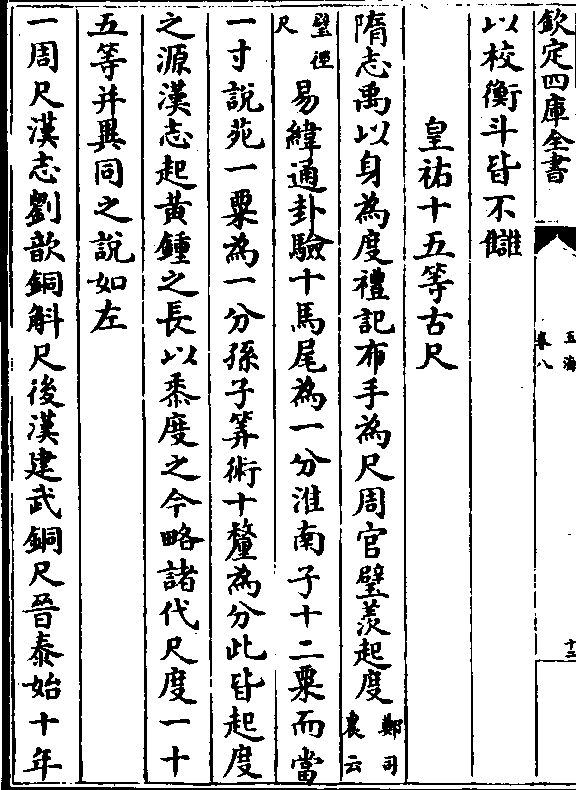 欽定四庫全書
玉海
卷八
十二
以校衡斗皆不讎
皇祐十五等古尺
隋志禹以身為度禮記布手為尺周官璧羨起度鄭司農云
璧徑尺易緯通卦驗十馬尾為一分淮南子十二粟而當
一寸說苑一粟為一分孫子筭術十釐為分此皆起度
之源漢志起黃鍾之長以黍度之今略諸代尺度一十
五等并異同之說如左
一周尺漢志劉歆銅斛尺後漢建武銅尺晉泰始十年